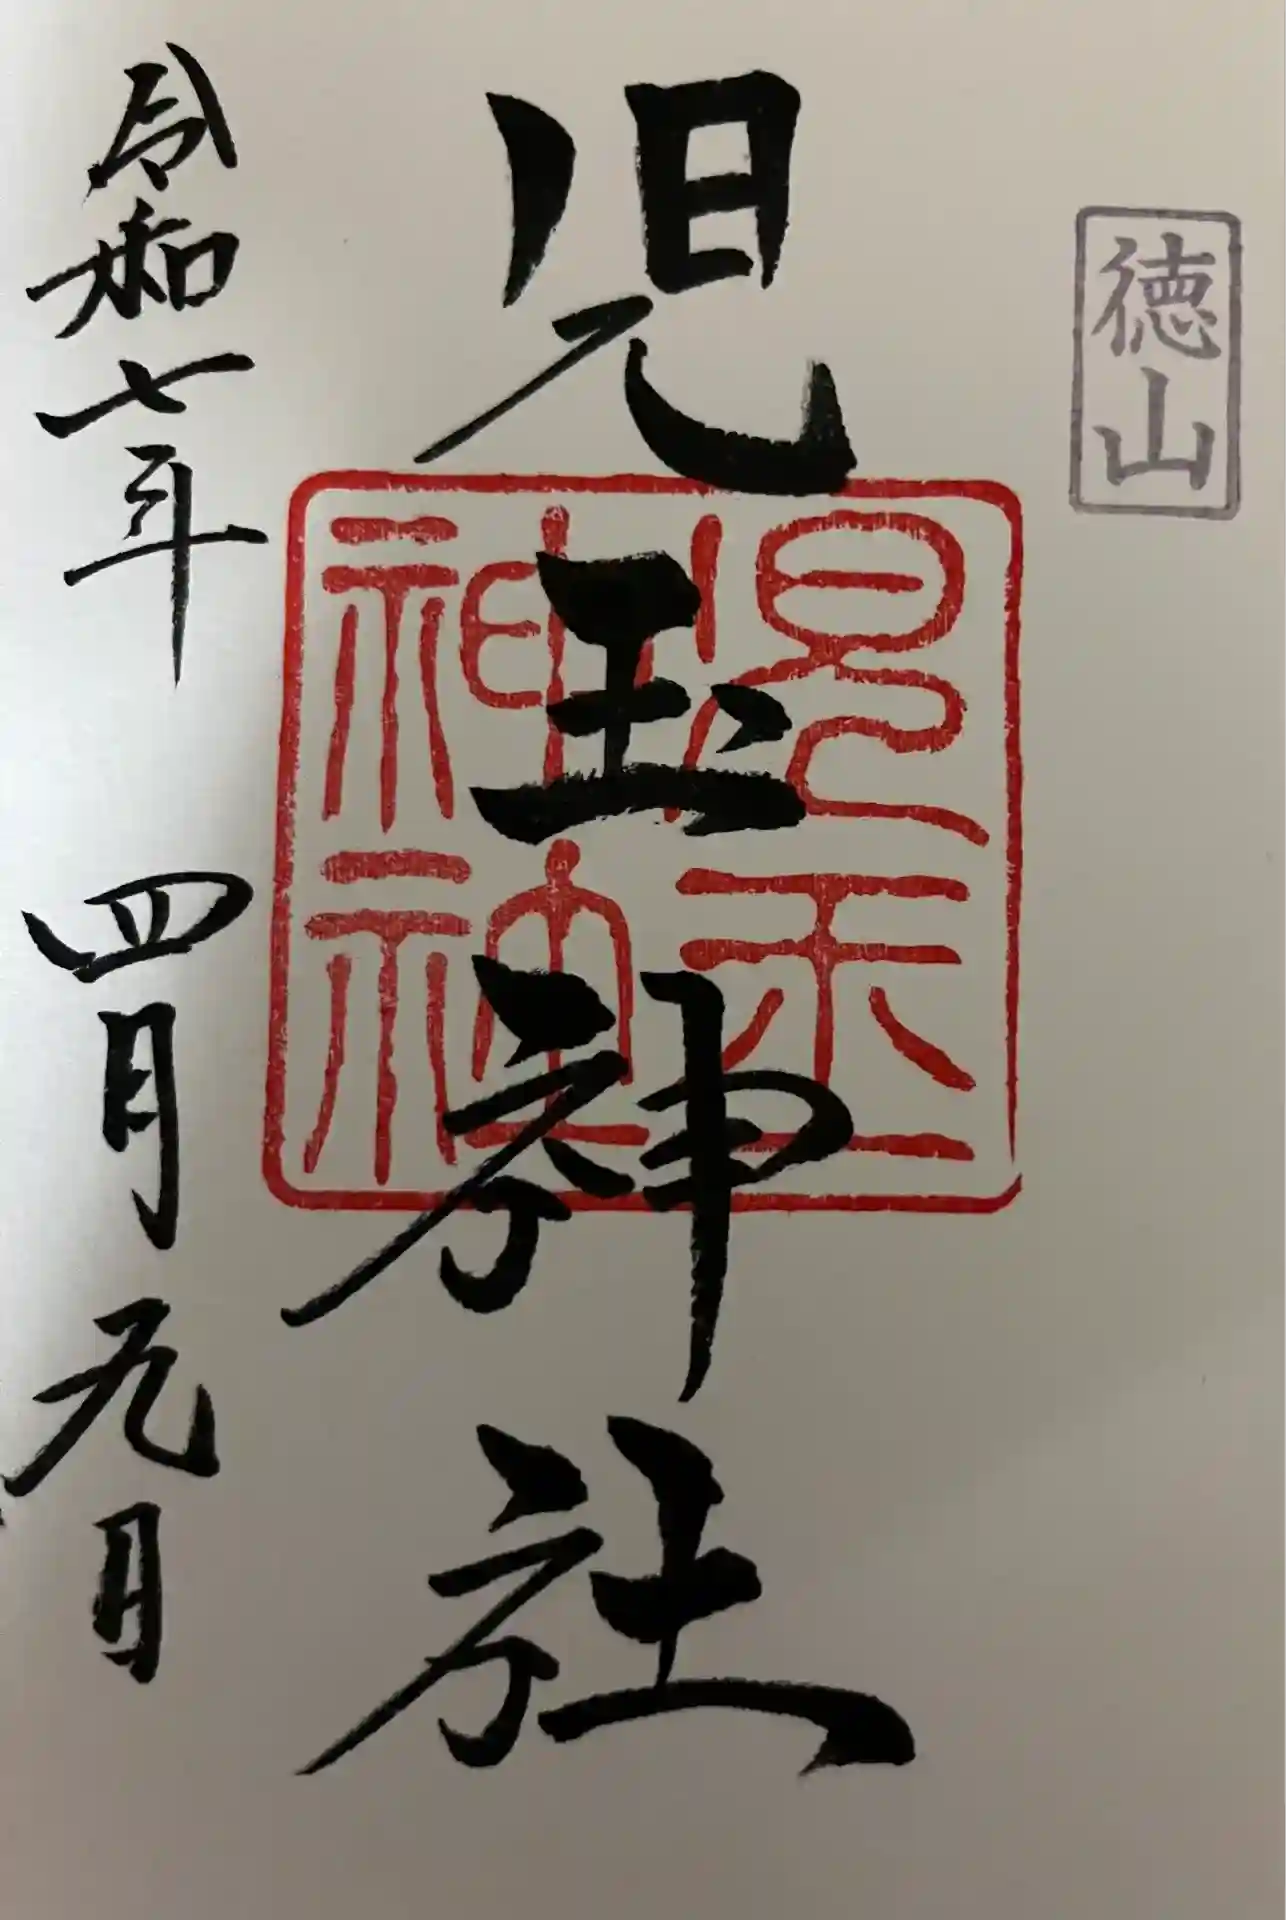 徳山
児玉神社
兒玉神社
令和七年 四月九日